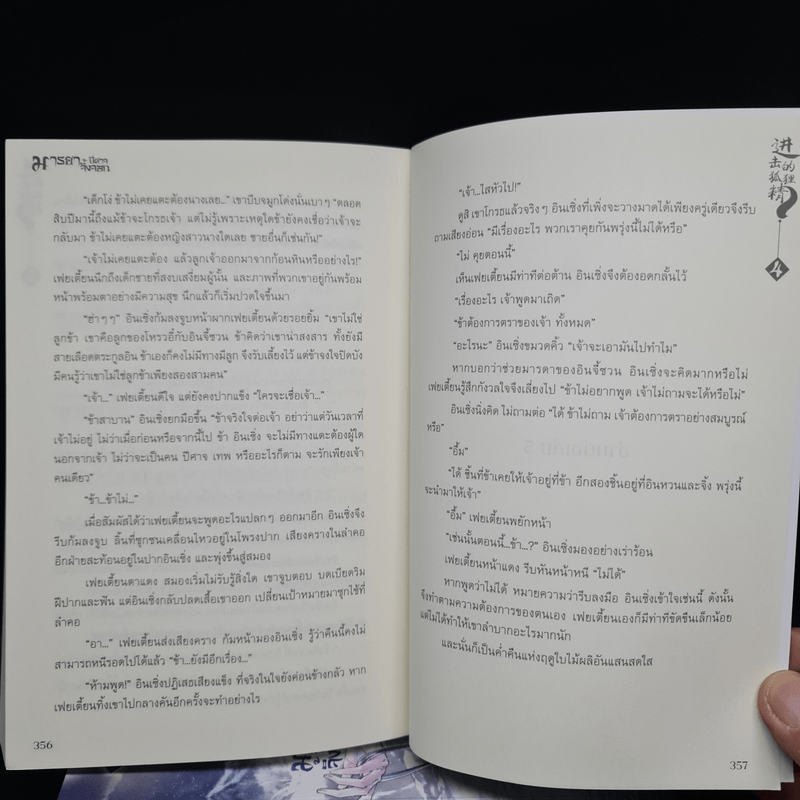 มารยาะปีศาจจิ้งจอก
"เด็กโง่ ข้าไม่เคยแตะต้องนางเลย..." เขาบีบจมูกโด่งนั่นเบาๆ "ตลอด
สิบปีมานี้ถึงแม้ข้าจะโกรธเจ้า แต่ไม่รู้เพราะเหตุใดข้ายังคงเชื่อว่าเจ้าจะ
กลับมา ข้าไม่เคยแตะต้องหญิงสาวนางใดเลย ชายอื่นก็เช่นกัน!"
"เจ้าไม่เคยแตะต้อง แล้วลูกเจ้าออกมาจากก้อนหินหรืออย่างไร!"
เฟยเตี้ยนนึกถึงเด็กชายที่สงบเสงี่ยมผู้นั้น และภาพที่พวกเขาอยู่กันพร้อม
หน้าพร้อมตาอย่างมีความสุข นึกแล้วก็เริ่มปวดใจขึ้นมา
"ฮ่าๆๆ" อินเชิ่งก้มลงจูบหน้าผากเฟยเตี้ยนด้วยรอยยิ้ม "เขาไม่ใช่
ลูกข้า เขาคือลูกของโหรวอี๋กับอินจี้ซวน ข้าคิดว่าเขาน่าสงสาร ทั้งยังมี
สายเลือดตระกูลอิน ข้าเองก็คงไม่มีทางมีลูก จึงรับเลี้ยงไว้ แต่ข้าจงใจปิดบัง
มีคนรู้ว่าเขาไม่ใช่ลูกข้าเพียงสองสามคน"
"เจ้า..." เฟยเตี้ยนดีใจ แต่ยังคงปากแข็ง "ใครจะเชื่อเจ้า..."
"ข้าสาบาน" อินเชิ่งยกมือขึ้น "ข้าจริงใจต่อเจ้า อย่าว่าแต่วันเวลาที่
เจ้าไม่อยู่ ไม่ว่าเมื่อก่อนหรือจากนี้ไป ข้า อินเชิ่ง จะไม่มีทางแตะต้องผู้ใด
นอกจากเจ้า ไม่ว่าจะเป็นคน ปีศาจ เทพ หรืออะไรก็ตาม จะรักเพียงเจ้า
คนเดียว"
"ข้า...ข้าไม่..."
เมื่อสัมผัสได้ว่าเฟยเตี้ยนจะพูดอะไรแปลกๆ ออกมาอีก อินเชิ่งจึง
รีบก้มลงจูบ ลิ้นที่ซุกซนเคลื่อนไหวอยู่ในโพรงปาก เสียงครางในลำคอ
อีกฝ่ายสะท้อนอยู่ในปากอินเชิ่ง และพุ่งขึ้นสู่สมอง
เฟยเตี้ยนตาแดง สมองเริ่มไม่รับรู้สิ่งใด เขาจูบตอบ บดเบียดริม
ฝีปากและฟัน แต่อินเชิ่งกลับปลดเสื้อเขาออก เปลี่ยนเป้าหมายมาซุกไซ้ที่
ลำคอ
"อา..." เฟยเตี้ยนส่งเสียงคราง ก้มหน้ามองอินเชิ่ง รู้ว่าคืนนี้คงไม่
สามารถหนีรอดไปได้แล้ว "ข้า...ยังมีอีกเรื่อง..."
"ห้ามพูด!" อินเชิ่งปฏิเสธเสียงแข็ง ที่จริงในใจยังค่อนข้างกลัว หาก
เฟยเตี้ยนทิ้งเขาไปกลางคันอีกครั้งจะทำอย่างไร
356
进击的狐狸精
4
"เจ้า...ไสหัวไป!"
ดูสิ เขาโกรธแล้วจริงๆ อินเชิ่งที่เพิ่งจะวางมาดได้เพียงครู่เดียวจึงรีบ
ถามเสียงอ่อน "มีเรื่องอะไร พวกเราคุยกันพรุ่งนี้ไม่ได้หรือ"
"ไม่ คุยตอนนี้"
เห็นเฟยเตี้ยนมีท่าทีต่อต้าน อินเชิ่งจึงต้องอดกลั้นไว้
"เรื่องอะไร เจ้าพูดมาเถิด"
"ข้าต้องการตราของเจ้า ทั้งหมด"
"อะไรนะ" อินเชิ่งขมวดคิ้ว "เจ้าจะเอามันไปทำไม"
หากบอกว่าช่วยมารดาของอินจี้ซวน อินเชิ่งจะคิดมากหรือไม่
เฟยเตี้ยนรู้สึกกังวลใจจึงเลี่ยงไป "ข้าไม่อยากพูด เจ้าไม่ถามจะได้หรือไม่"
อินเชิ่งนิ่งคิด ไม่ถามต่อ "ได้ ข้าไม่ถาม เจ้าต้องการตราอย่างสมบูรณ์
หรือ"
"อื้ม"
"ได้ ชิ้นที่ข้าเคยให้เจ้าอยู่ที่ข้า อีกสองชิ้นอยู่ที่อินหวนและจิ้ง พรุ่งนี้
จะนำมาให้เจ้า"
"อื้ม" เฟยเตี้ยนพยักหน้า
"เช่นนั้นตอนนี้...ข้า...?" อินเชิ่งมองอย่างเร่าร้อน
เฟยเตี้ยนหน้าแดง รีบหันหน้าหนี "ไม่ได้"
หากพูดว่าไม่ได้ หมายความว่ารีบลงมือ อินเชิ่งเข้าใจเช่นนี้ ดังนั้น
จึงทำตามความต้องการของตนเอง เฟยเตี้ยนเองก็มีท่าทีขัดขืนเล็กน้อย
แต่ไม่ได้ทำให้เขาลำบากอะไรมากนัก
และนั่นก็เป็นค่ำคืนแห่งฤดูใบไม้ผลิอันแสนสดใส
357